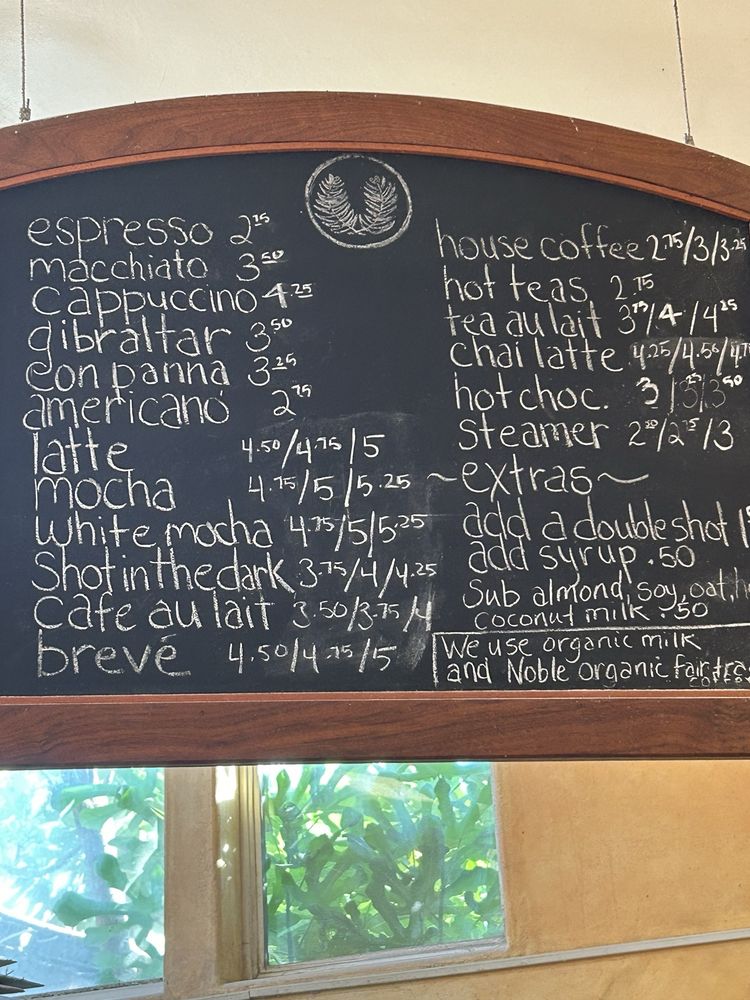 espresso 2.15
macchiato 3.50
cappuccino 4.25
gibraltar 3.50
con panna 3.25
americano 2.75
latte 4.50/4.75/5
mocha 4.75/5/5.25
white mocha 4.75/5/5.25
Shot in the dark 3.75/4/4.25
cafe au lait 3.50/3.75/4
brevé 4.50/4.75/5
house coffee 2.75/3/3.25
hot teas 2.75
tea au lait 3.75/4/4.25
chai latte 4.25/4.50/4.7
hot choc. 3/3.25/3.50
steamer 2.50/2.75/3
~extras~
add a double shot
add syrup .50
Sub almond, soy, oat,
coconut milk .50
We use organic milk
and Noble organic fair tra